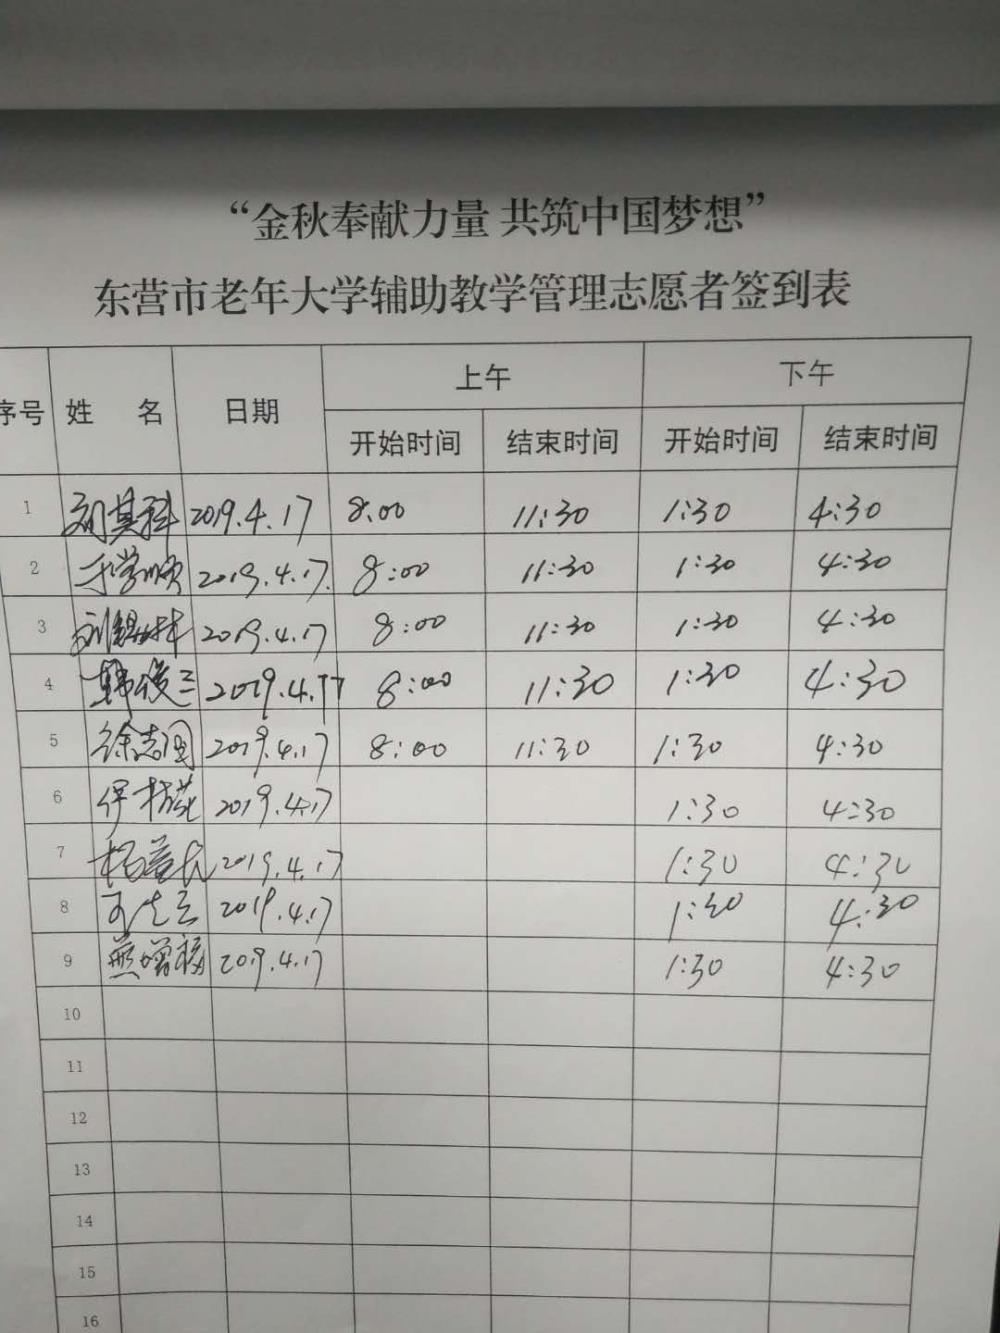 “金秋奉献力量 共筑中国梦想”
东营市老年大学辅助教学管理志愿者签到表
序号 姓 名 日期 上午 下午
开始时间 结束时间 开始时间 结束时间
1 刘其科 2019.4.17 8:00 11:30 1:30 4:30
2 于学顺 2019.4.17. 8:00 11:30 1:30 4:30
3 2019.4.17 8:00 11:30 1:30 4:30
4 韩俊三 2019.4.17 8:00 11:30 1:30 4:30
5 徐志国 2019.4.17 8:00 11:30 1:30 4:30
6 2019.4.17 1:30 4:30
7 2019.4.17 1:30 4:30
8 2019.4.17 1:30 4:30
9 燕增福 2019.4.17 1:30 4:30
10
11
12
13
14
15
16